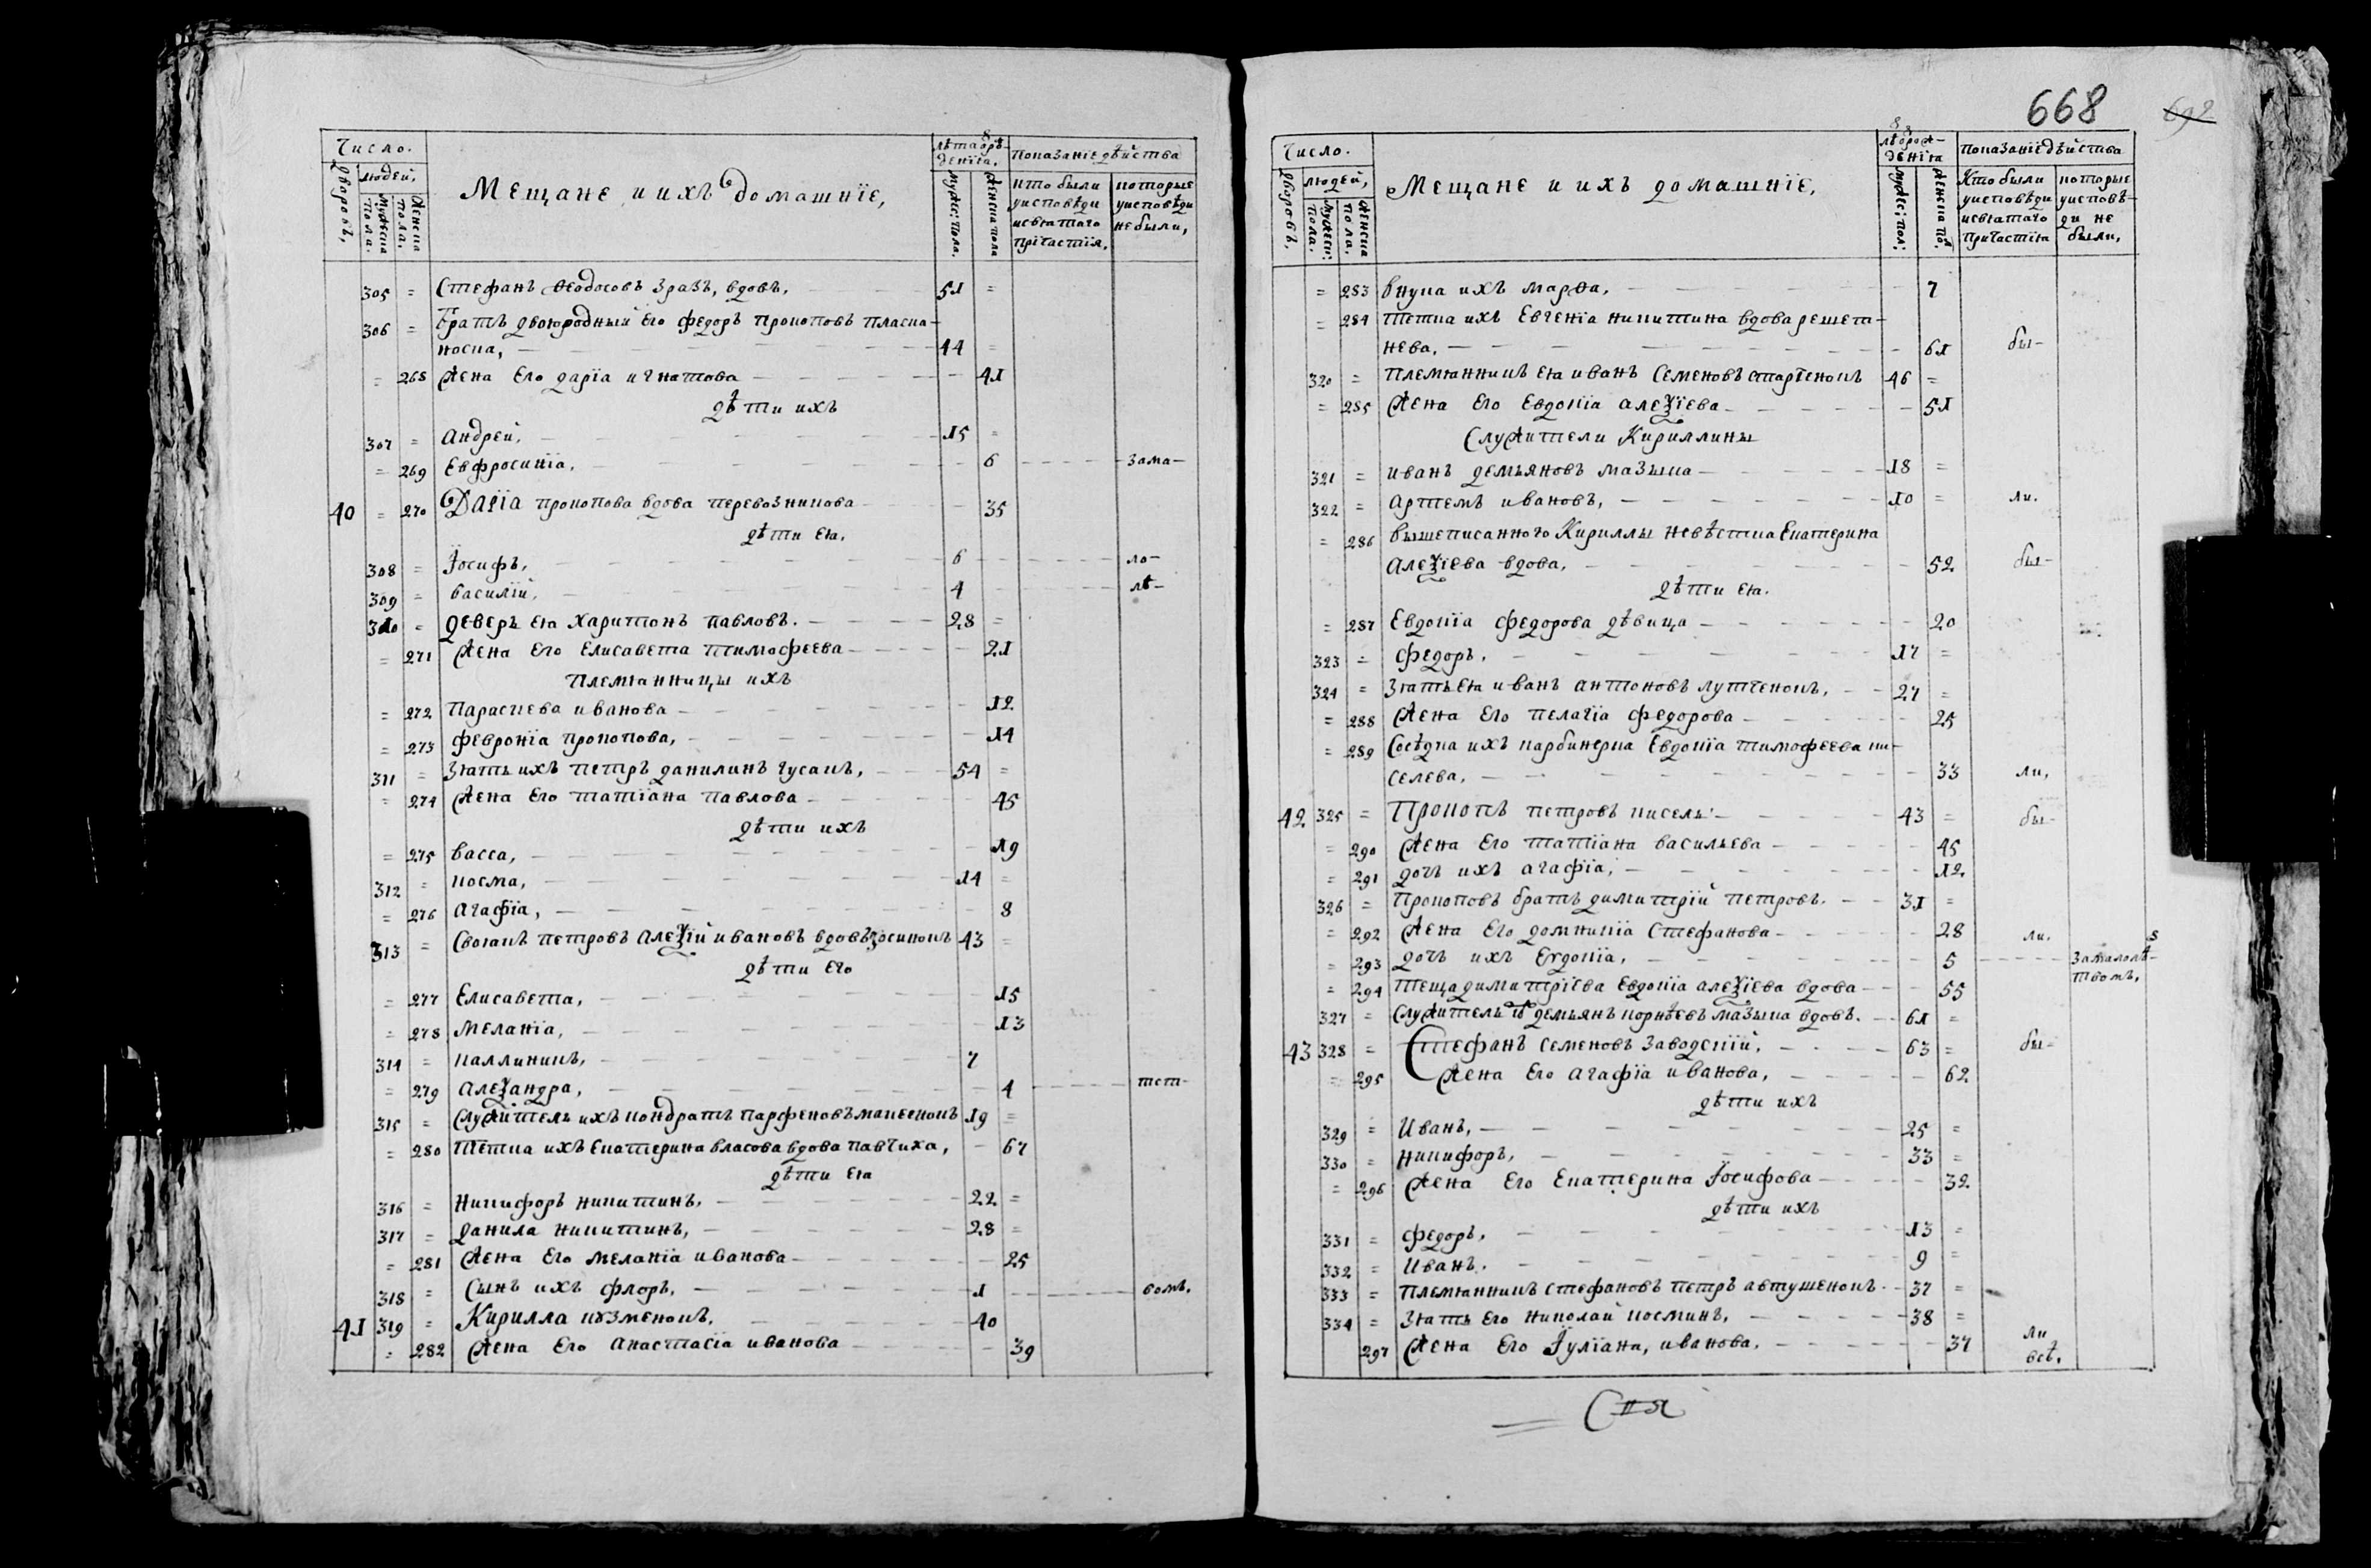 Число.
Дворовъ,
людей,
Мужеска пола.
Женска пола.
Мещане и ихъ домашнїе,
лѣта ѡтъ рож-
денїѧ.
Муже: пола.
Женска пола
показанїе дѣйства
кто были
у исповѣди
и свѧтаго
причастїя,
которые
у исповѣди
не были,
305 = Стефанъ Ѳеодосовъ Зразъ, вдовъ, 51 =
306 = Братъ двоюродный Его Федоръ Прокоповъ Пласко-
носка, 44 =
= 268 Жена Его Дарїа Игнатова 41
дѣти ихъ
307 = Андрей, 15 =
= 269 Евфросинїа, 6 за ма-
40 = 270 Дарїа Прокопова вдова Перевозникова 35
дѣти Еѧ,
308 = Іосифъ, 6 ло-
309 = Василїй, 4 лѣ-
310 = деверь Еѧ Харитонъ Павловъ. 28 =
= 271 Жена Его Елисавета Тимофеева 21
Племѧнницы ихъ
= 272 Параскева Иванова 12
= 273 Февронїа Прокопова, 14
311 = Зѧть ихъ Петръ Данилинъ Гусакъ, 54 =
= 274 Жена Его Татїана Павлова 45
дѣти ихъ
= 275 Васса, 19
312 = Косма, 14 =
= 276 Агафїа, 8
313 = Своѧкъ Петровъ Алеѯїй Ивановъ вдовъ Зосинокъ 43 =
дѣти Его
= 277 Елисавета, 15
= 278 Меланїа, 13
314 = Каллиникъ, 7
= 279 Алеѯандра, 4 тст-
315 = Служитель ихъ Кондратъ Парфеновъ Макеенокъ 19 =
= 280 Тетка ихъ Екатерина Власова вдова Павчиха, 67
дѣти Еѧ
316 = Никифоръ Никитинъ, 22 =
317 = Данила Никитинъ, 28 =
= 281 Жена Его Меланїа Иванова 25
318 = Сынъ ихъ Флоръ, 1 вомъ.
41 319 = Кирилла Кꙋзменокъ, 40
= 282 Жена Его Анастасїа Иванова 39
668
692
Число.
Дворовъ.
людей,
Мужеск: пола.
Женска пола.
Мещане и ихъ домашнїе,
лѣ ѡ рож-
денїѧ
Муже: пол:
Женска по:
показанїе дѣйства
Кто были
у исповѣди
и свѧтаго
причастїѧ
которые
у исповѣ-
ди не
были,
= 283 Внука ихъ Марѳа, 7
= 284 Тетка ихъ Евгенїа Никитина вдова Решет-
нева, 61 бы-
320 = Племѧнникъ Еѧ Иванъ Семеновъ Старченокъ 46 =
= 285 Жена Его Евдокїа Алеѯїева 51
Служители Кириллины
321 = Иванъ Демьяновъ Мазыка 18 =
322 = Артемъ Ивановъ, 10 = ли.
= 286 Вышеписанного Кириллы невѣстка Екатерина
Алеѯїева вдова, 52 бы-
дѣти Еѧ.
= 287 Евдокїа Федорова дѣвица 20
323 = Федоръ, 17 =
324 = Зѧть Еѧ Иванъ Антоновъ Лутченокъ, 27 =
= 288 Жена Его Пелагїа Федорова 25
= 289 Сосѣдка ихъ карбинерка Евдокїа Тимофеева Ки-
селева, 33 ли,
42 325 = Прокопъ Петровъ Кисель 43 = бы-
= 290 Жена Его Татїана Васильева 45
= 291 дочь ихъ Агафїа, 12
326 = Прокоповъ братъ Димитрїй Петровъ. 31 =
= 292 Жена Его Домникїа Стефанова 28 ли.
= 293 дочь ихъ Евдокїа, 5 За малолѣт-
ствомъ,
= 294 Теща Димитрїева Евдокїа Алеѯїева вдова 55
327 = Служитель ихъ Демьянъ Корнѣевъ Мазыка вдовъ. 61 =
43 328 = Стефанъ Семеновъ Заводскїй, 63 = бы-
= 295 Жена Его Агафїа Иванова, 62
дѣти ихъ
329 = Иванъ, 25 =
330 = Никифоръ, 33 =
= 296 Жена Его Екатерина Іосифова 32
дѣти ихъ
331 = Федоръ, 13 =
332 = Иванъ. 9 =
333 = Племѧнникъ Стефановъ Петръ Автушенокъ 37 =
334 = Зѧть Его Николай Косминъ, 38 =
297 Жена Его Іулїана, Иванова. 37 ли
всѣ.